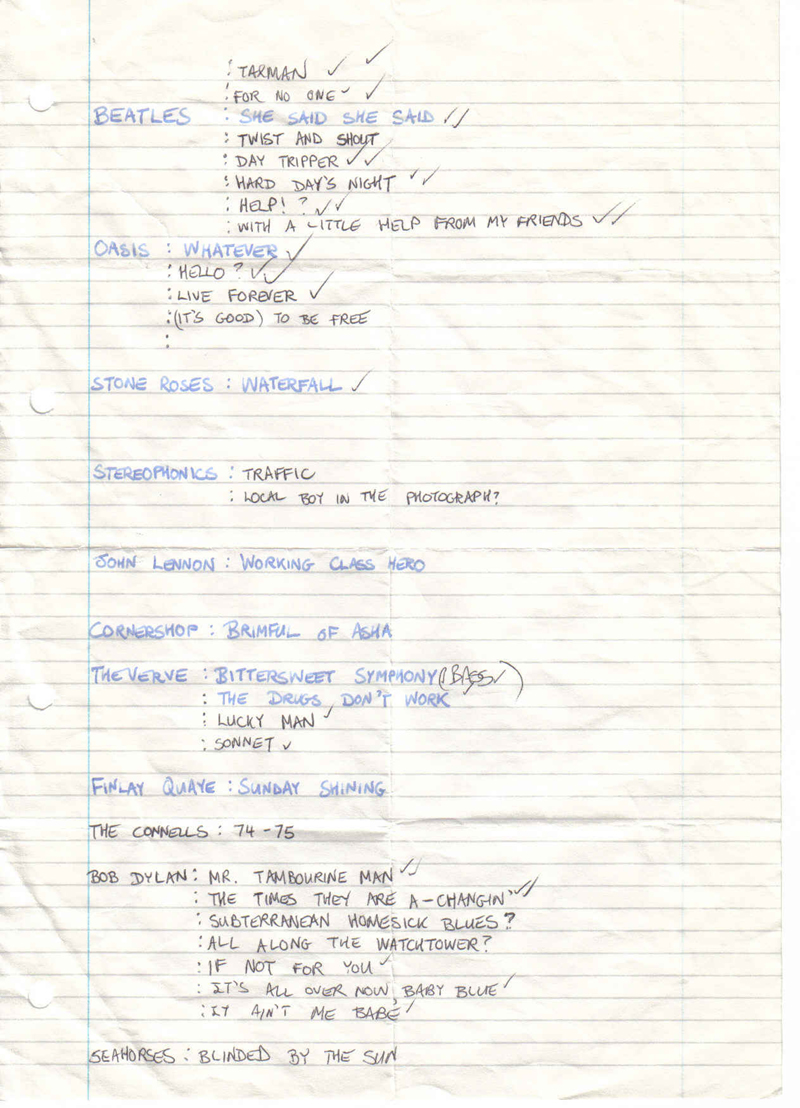 : TAXMAN ✓ ✓
: FOR NO ONE ✓ ✓
BEATLES : SHE SAID SHE SAID ✓✓
: TWIST AND SHOUT
: DAY TRIPPER ✓✓
: HARD DAY'S NIGHT ✓✓
: HELP! ? ✓✓
: WITH A LITTLE HELP FROM MY FRIENDS ✓✓
OASIS : WHATEVER ✓
: HELLO ? ✓✓
: LIVE FOREVER ✓
: (IT'S GOOD) TO BE FREE
:
STONE ROSES : WATERFALL ✓
STEREOPHONICS : TRAFFIC
: LOCAL BOY IN THE PHOTOGRAPH?
JOHN LENNON : WORKING CLASS HERO
CORNERSHOP : BRIMFUL OF ASHA
THE VERVE : BITTERSWEET SYMPHONY (BASS ✓)
: THE DRUGS DON'T WORK
: LUCKY MAN ✓
: SONNET ✓
FINLAY QUAYE : SUNDAY SHINING
THE CONNELLS : 74-75
BOB DYLAN : MR. TAMBOURINE MAN ✓✓
: THE TIMES THEY ARE A-CHANGIN' ✓✓
: SUBTERRANEAN HOMESICK BLUES?
: ALL ALONG THE WATCHTOWER?
: IF NOT FOR YOU ✓
: IT'S ALL OVER NOW, BABY BLUE ✓
: IT AIN'T ME BABE ✓
SEAHORSES : BLINDED BY THE SUN